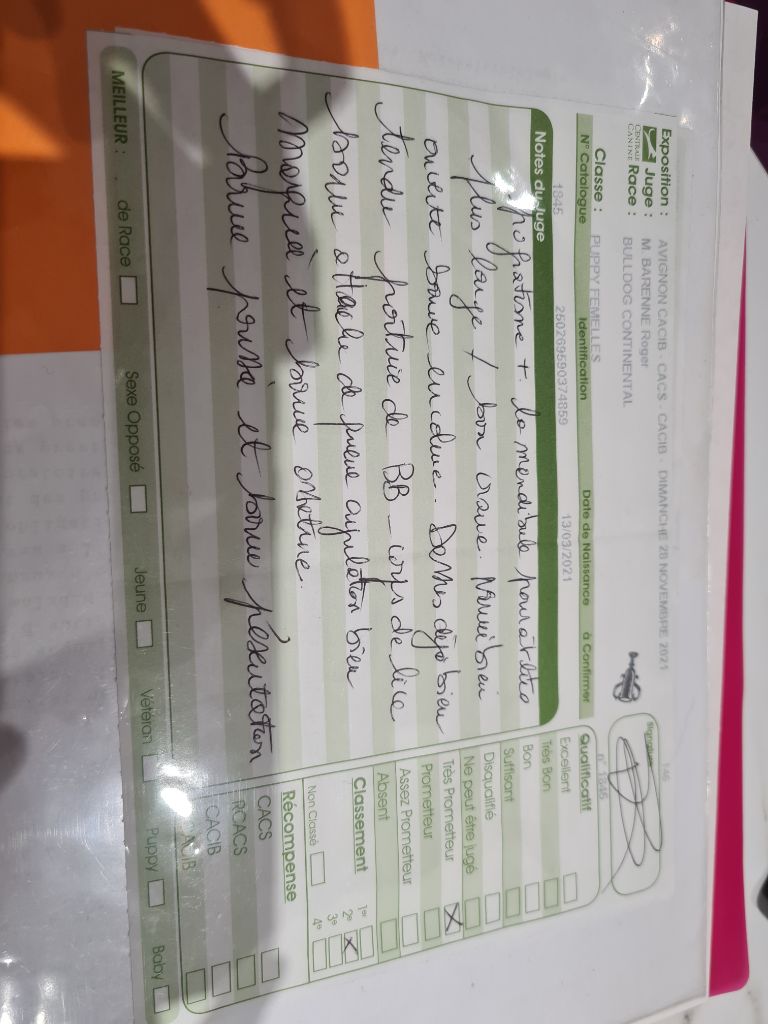 Exposition : AVIGNON CACIB - CACS - CACIB - DIMANCHE 28 NOVEMBRE 2021
Juge : M. BARENNE Roger
Race : BULLDOG CONTINENTAL
CENTRALE CANINE
Classe : PUPPY FEMELLES
Signature
n° 1845
N° Catalogue Identification Date de Naissance à Confirmer
1845 250269590374859 13/03/2021
Notes du Juge
+. la mendibule pourait être
plus large / bon crane. Narine bien
ouverte bonne encolure. Dessus déjà bien
tendu poitrine de BB - corps de lice
bonne attache de queue angulation bien
marqué et bonne ossature.
bonne poussé et bonne présentation
Qualificatif
Excellent
Très Bon
Bon
Suffisant
Disqualifié
Ne peut être jugé
Très Prometteur X
Prometteur
Assez Prometteur
Absent
Classement 1er
2e X
3e
Non Classé 4e
Récompense
CACS
RCACS
CACIB
MEILLEUR : de Race Sexe Opposé Jeune Vétéran Puppy Baby